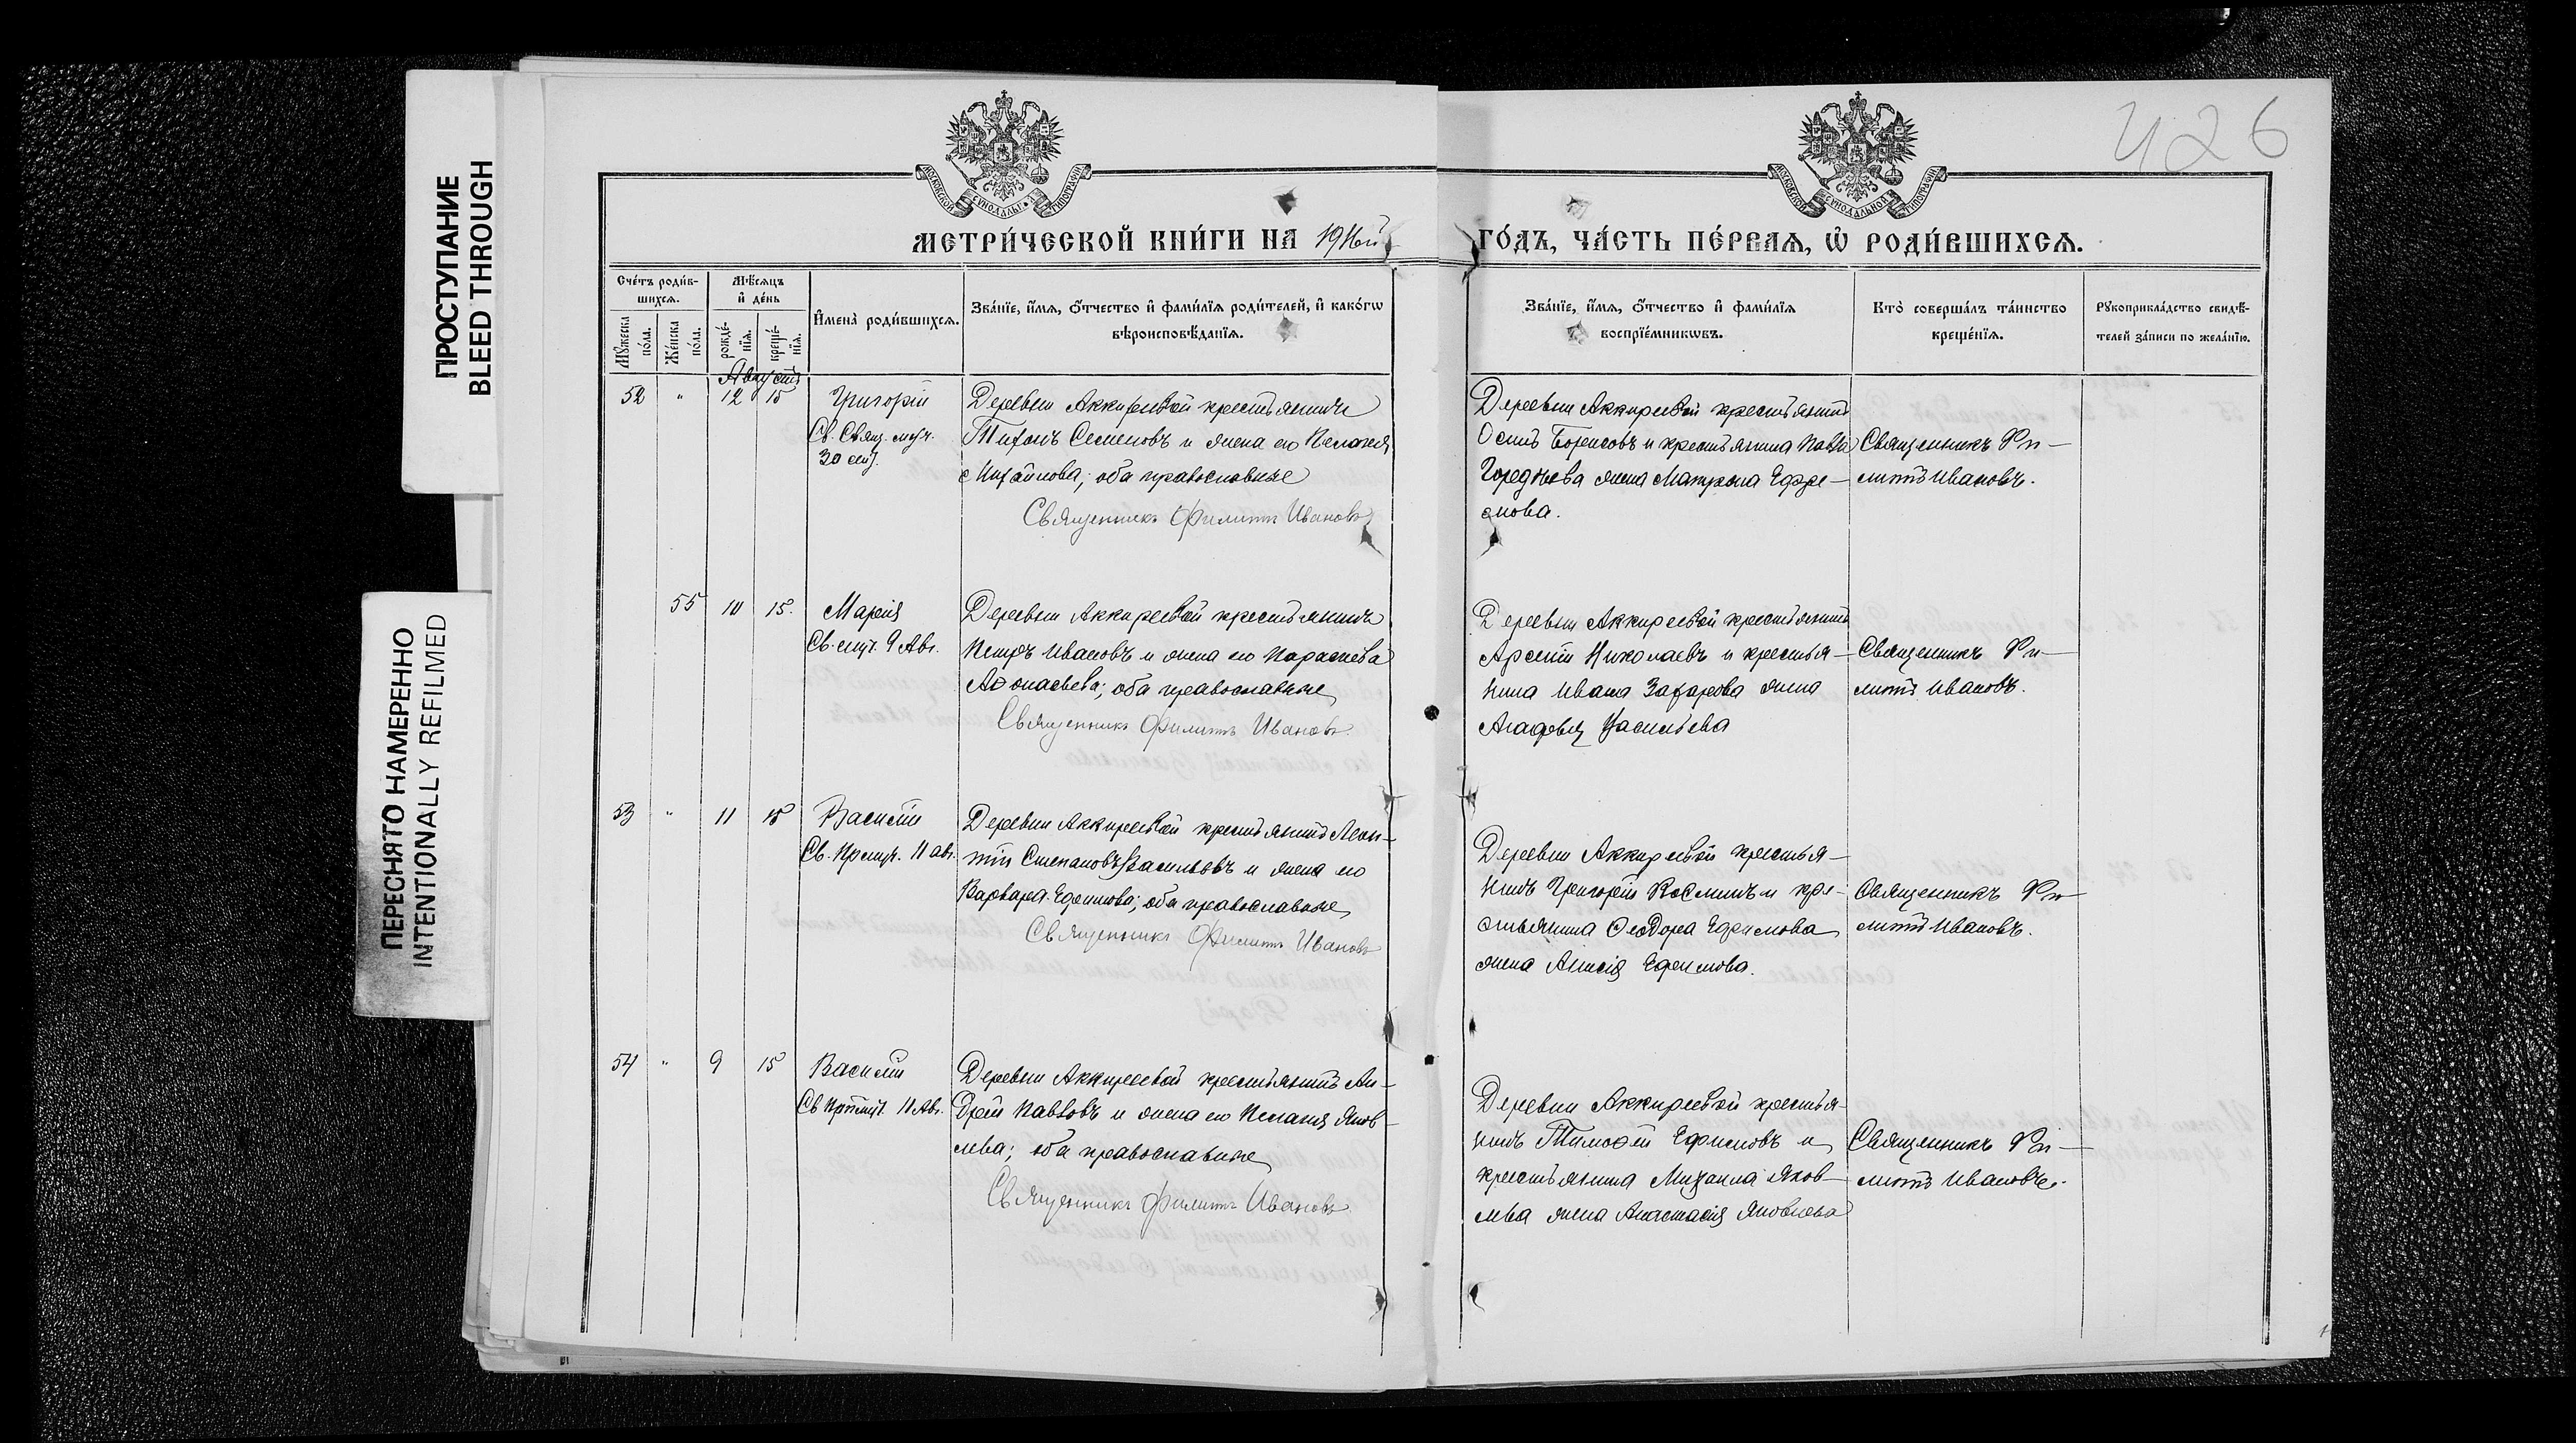 ПРОСТУПАНИЕ
BLEED THROUGH
ПЕРЕСНЯТО НАМЕРЕННО
INTENTIONALLY REFILMED
426
МОСКОВСКОЙ СѴНОДАЛЬНОЙ ТИПОГРАФІИ
МОСКОВСКОЙ СѴНОДАЛЬНОЙ ТИПОГРАФІИ
МЕТРИ́ЧЕСКОЙ КНИ́ГИ НА 1911ый
ГО́ДЪ, ЧА́СТЬ ПЕ́РВАѦ, Ѽ РОДИ́ВШИХСѦ.
Сче́тъ роди́в-
шихсѧ.
Мꙋ́жеска по́ла.
Же́нска по́ла.
Мѣ́сѧцъ
и҆ де́нь
рожде́-
нїѧ.
креще́-
нїѧ.
И҆мена̀ роди́вшихсѧ.
Зва́нїе, и҆́мѧ, ѻ҆́тчество и҆ фами́лїѧ роди́телей, и҆ како́гѡ
вѣроисповѣ́данїѧ.
Зва́нїе, и҆́мѧ, ѻ҆́тчество и҆ фами́лїѧ
воспрїе́мникѡвъ.
Кто̀ соверша́лъ та́инство
креще́нїѧ.
Рꙋкоприкла́дство свидѣ́-
телей за́писи по жела́нїю.
Августъ
52 " 12 15
Григорій
Св. Свящ. муч.
30 сен.
Деревни Аккиреевой крестьянинъ
Тихонъ Семеновъ и жена его Пелагея
Михайлова; оба православные
Священникъ Филиппъ Ивановъ
Деревни Аккиреевой крестьянинъ
Осипъ Борисовъ и крестьянина Павла
Гордѣева жена Матрона Ефре-
мова.
Священникъ Фи-
липпъ Ивановъ.
55 10 15.
Марія
Св. муч. 9 Авг.
Деревни Аккиреевой крестьянинъ
Петръ Ивановъ и жена его Параскева
Аѳонасьева; оба православные
Священникъ Филиппъ Ивановъ
Деревни Аккиреевой крестьянинъ
Арсеній Николаевъ и крестья-
нина Ивана Захарова жена
Агафья Васильева
Священникъ Фи-
липпъ Ивановъ.
53 " 11 15
Василій
Св. Прмуч. 11 авг.
Деревни Аккиреевой крестьянинъ Леон-
тій Степановъ Васильевъ и жена его
Варвара Ефимова; оба православные
Священникъ Филиппъ Ивановъ
Деревни Аккиреевой крестья-
нинъ Григорій Косминъ и кре-
стьянина Ѳеодора Ефимова
жена Анисія Ефимова.
Священникъ Фи-
липпъ Ивановъ.
54 " 9 15
Василій
Св Прпмуч. 11 Авг.
Деревни Аккиреевой крестьянинъ Ан-
дрей Павловъ и жена его Пелагія Яков-
лева; оба православные
Священникъ Филиппъ Ивановъ
Деревни Аккиреевой крестья-
нинъ Тимоѳей Ефимовъ и
крестьянина Михаила Яков-
лева жена Анастасія Яковлева
Священникъ Фи-
липпъ Ивановъ.